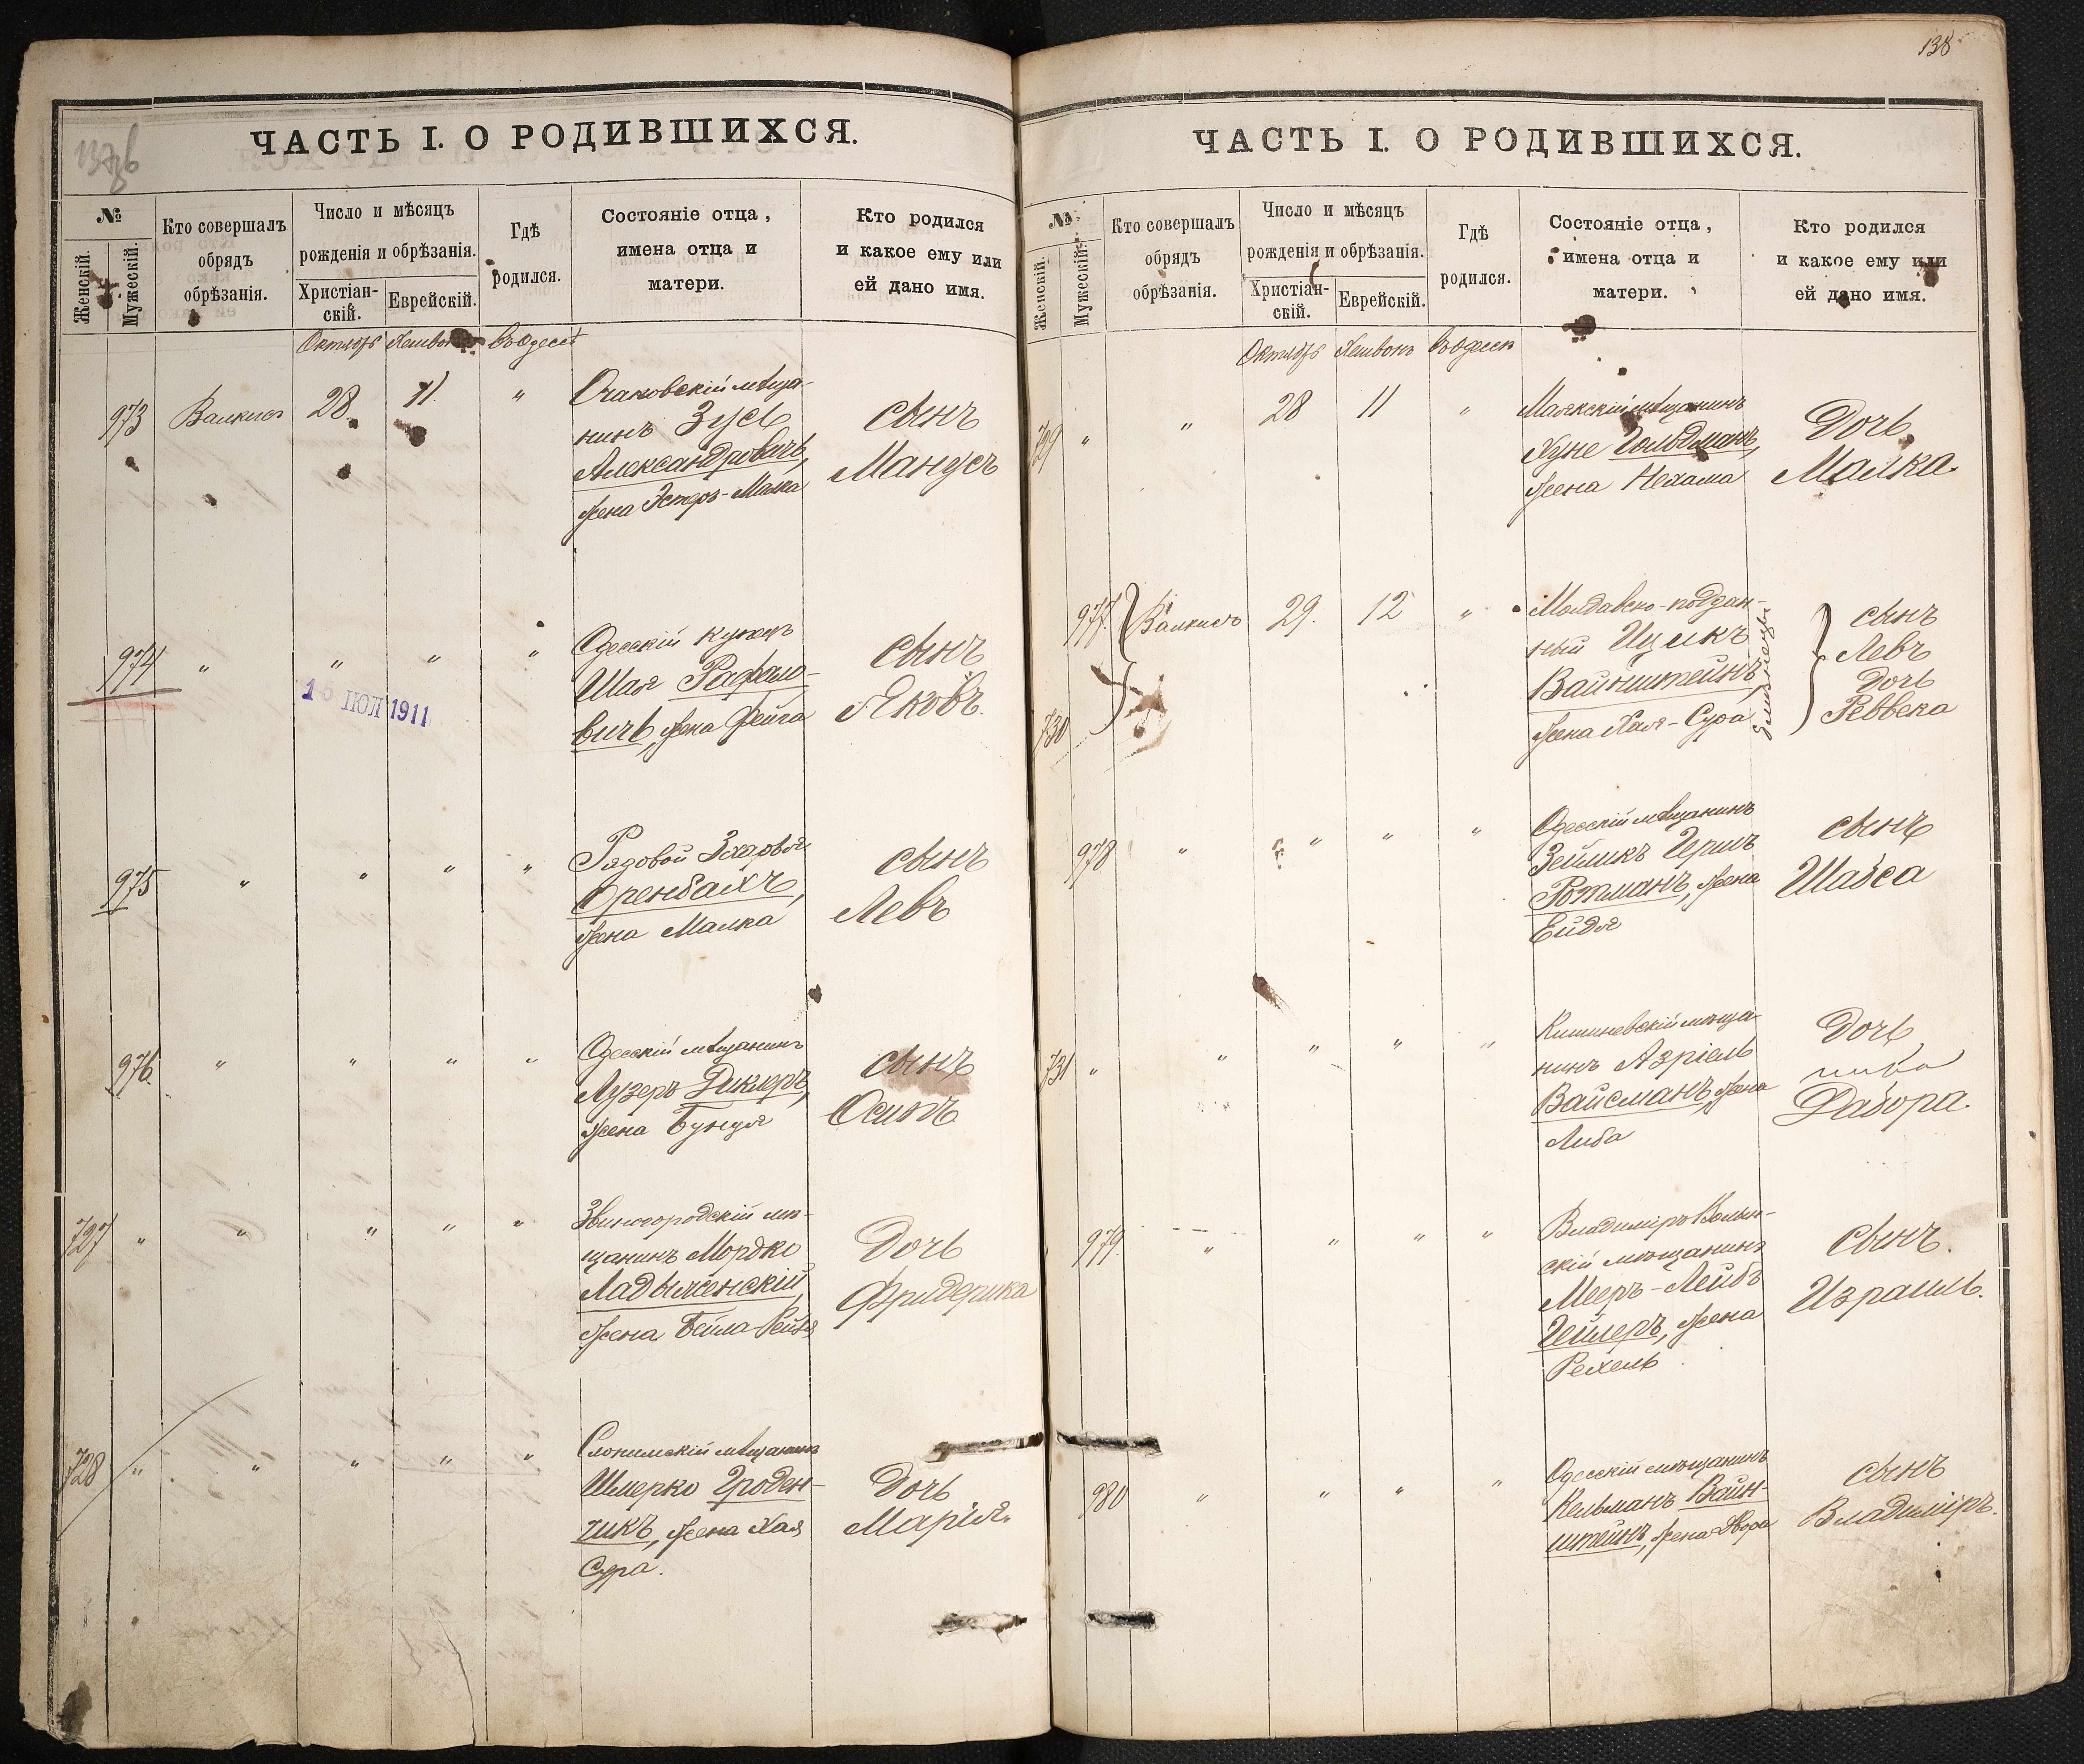 137об
ЧАСТЬ I. О РОДИВШИХСЯ.
№
Женскій.
Мужескій.
Кто совершалъ
обрядъ
обрѣзанія.
Число и мѣсяцъ
рожденія и обрѣзанія.
Христіан-
скій.
Еврейскій.
Гдѣ
родился.
Состояніе отца,
имена отца и
матери.
Кто родился
и какое ему или
ей дано имя.
Октябрь
въ Одессѣ
973
28.
11.
"
Очаковскій мѣща-
нинъ Зусь
Александровичъ,
жена Эстеръ-Малка
сынъ
Манусъ
974
"
"
"
"
15 ІЮЛ 1911
Одесскій купецъ
Шая Рафало-
вичъ, жена Фейга
сынъ
Яковъ.
975
"
"
"
"
Рядовой
Оренбахъ,
жена Малка
сынъ
Левъ
976.
"
"
"
"
Одесскій мѣщанинъ
Лузеръ Диклеръ,
жена Бунця
сынъ
Осипъ
727
"
"
"
"
"
Звиногородскій мѣ-
щанинъ Мордко
Ладыженскій,
жена Бейла-Рейзя
Дочь
Фридерика
728
"
"
"
"
"
Слонимскій мѣщанинъ
Шмерко Гроден-
чикъ, жена Хая
Сура.
Дочь
Марія.
138
ЧАСТЬ I. О РОДИВШИХСЯ.
№
Женскій.
Мужескій.
Кто совершалъ
обрядъ
обрѣзанія.
Число и мѣсяцъ
рожденія и обрѣзанія.
Христіан-
скій.
Еврейскій.
Гдѣ
родился.
Состояніе отца,
имена отца и
матери.
Кто родился
и какое ему или
ей дано имя.
Октябрь
Хешвонъ
въ Одессѣ
729
"
"
28
11
"
Маякскій мѣщанинъ
Хуне Гольдманъ,
жена Нехама
Дочь
Малка.
977.
730
29.
12
"
Молдавско-поддан-
ный Ицикъ
Вайнштейнъ,
жена Хая-Сура
близнецы
сынъ
Левъ
Дочь
Реввека
978
"
"
"
"
Одесскій мѣщанинъ
Зейликъ Гершъ
Ротманъ, жена
Ейдя
сынъ
Шабса
731
"
"
"
"
"
Кишиневскій мѣща-
нинъ Азріель
Вайсманъ, жена
Либа
Дочь
Дабора.
979.
"
"
"
"
Владиміръ Волын-
скій мѣщанинъ
Мееръ-Лейбъ
Гейлеръ, жена
Рехель
сынъ.
Израиль.
980
"
"
"
"
Одесскій мѣщанинъ
Кельманъ Вайн-
штейнъ, жена Двора
сынъ
Владиміръ.